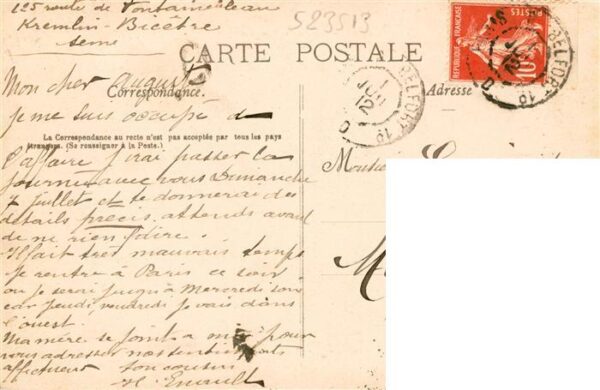 125 route de Fontainebleau
Kremlin-Bicêtre
Seine
523513
CARTE POSTALE
Mon cher Auguste
Correspondance.
Adresse
je me suis occupé de
La Correspondance au recto n'est pas acceptée par tous les pays
étrangers. (Se renseigner à la Poste.)
l'affaire j'irai passer la
journée avec vous Dimanche
7 juillet et te donnerai des
détails précis attends avant
de ne rien faire.
Il fait très mauvais temps
Je rentre à Paris ce soir
ou je serai jusqu'à Mercredi soir
car Jeudi, vendredi je vais dans
l'ouest.
Ma mère se joint a moi pour
vous adresser nos sentiments
affectueux ton cousin
H. Enault
Monsieur
REPUBLIQUE FRANÇAISE
POSTES
10
BELFORT
BELFORT